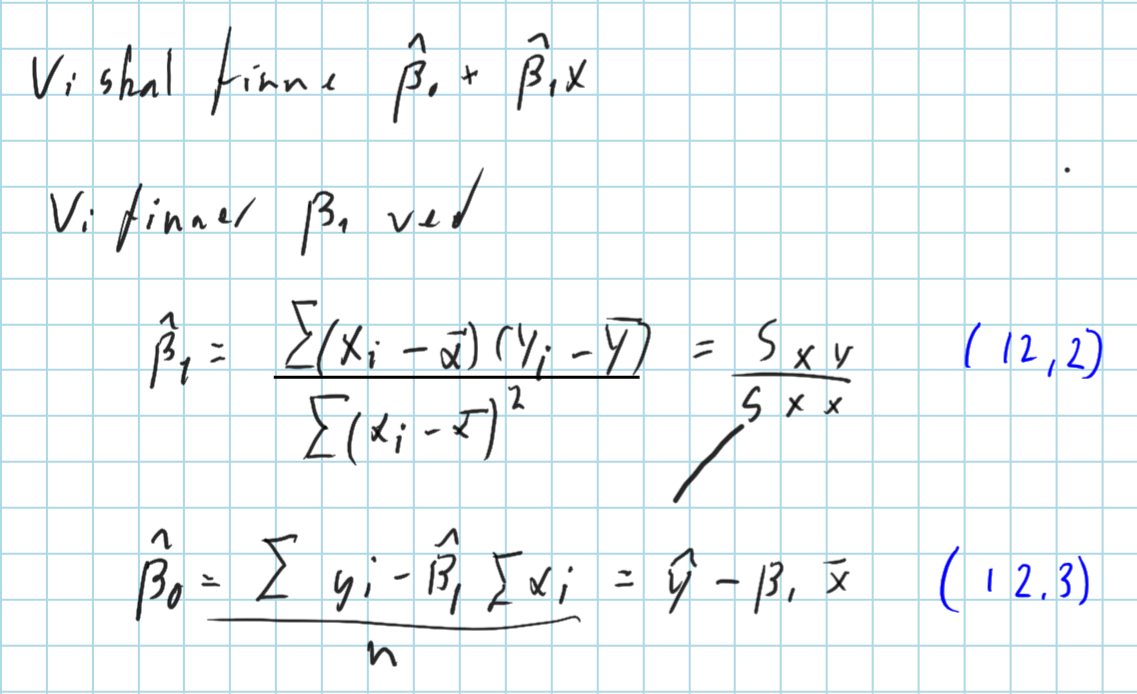 Vi skal finne β̂₀ + β̂₁x
Vi finner β₁ ved
β̂₁ = Σ(xᵢ - x̄)(yᵢ - ȳ) / Σ(xᵢ - x̄)² = Sxy / Sxx (12,2)
β̂₀ = Σ yᵢ - β̂₁ Σ xᵢ / n = ŷ - β₁ x̄ (12.3)